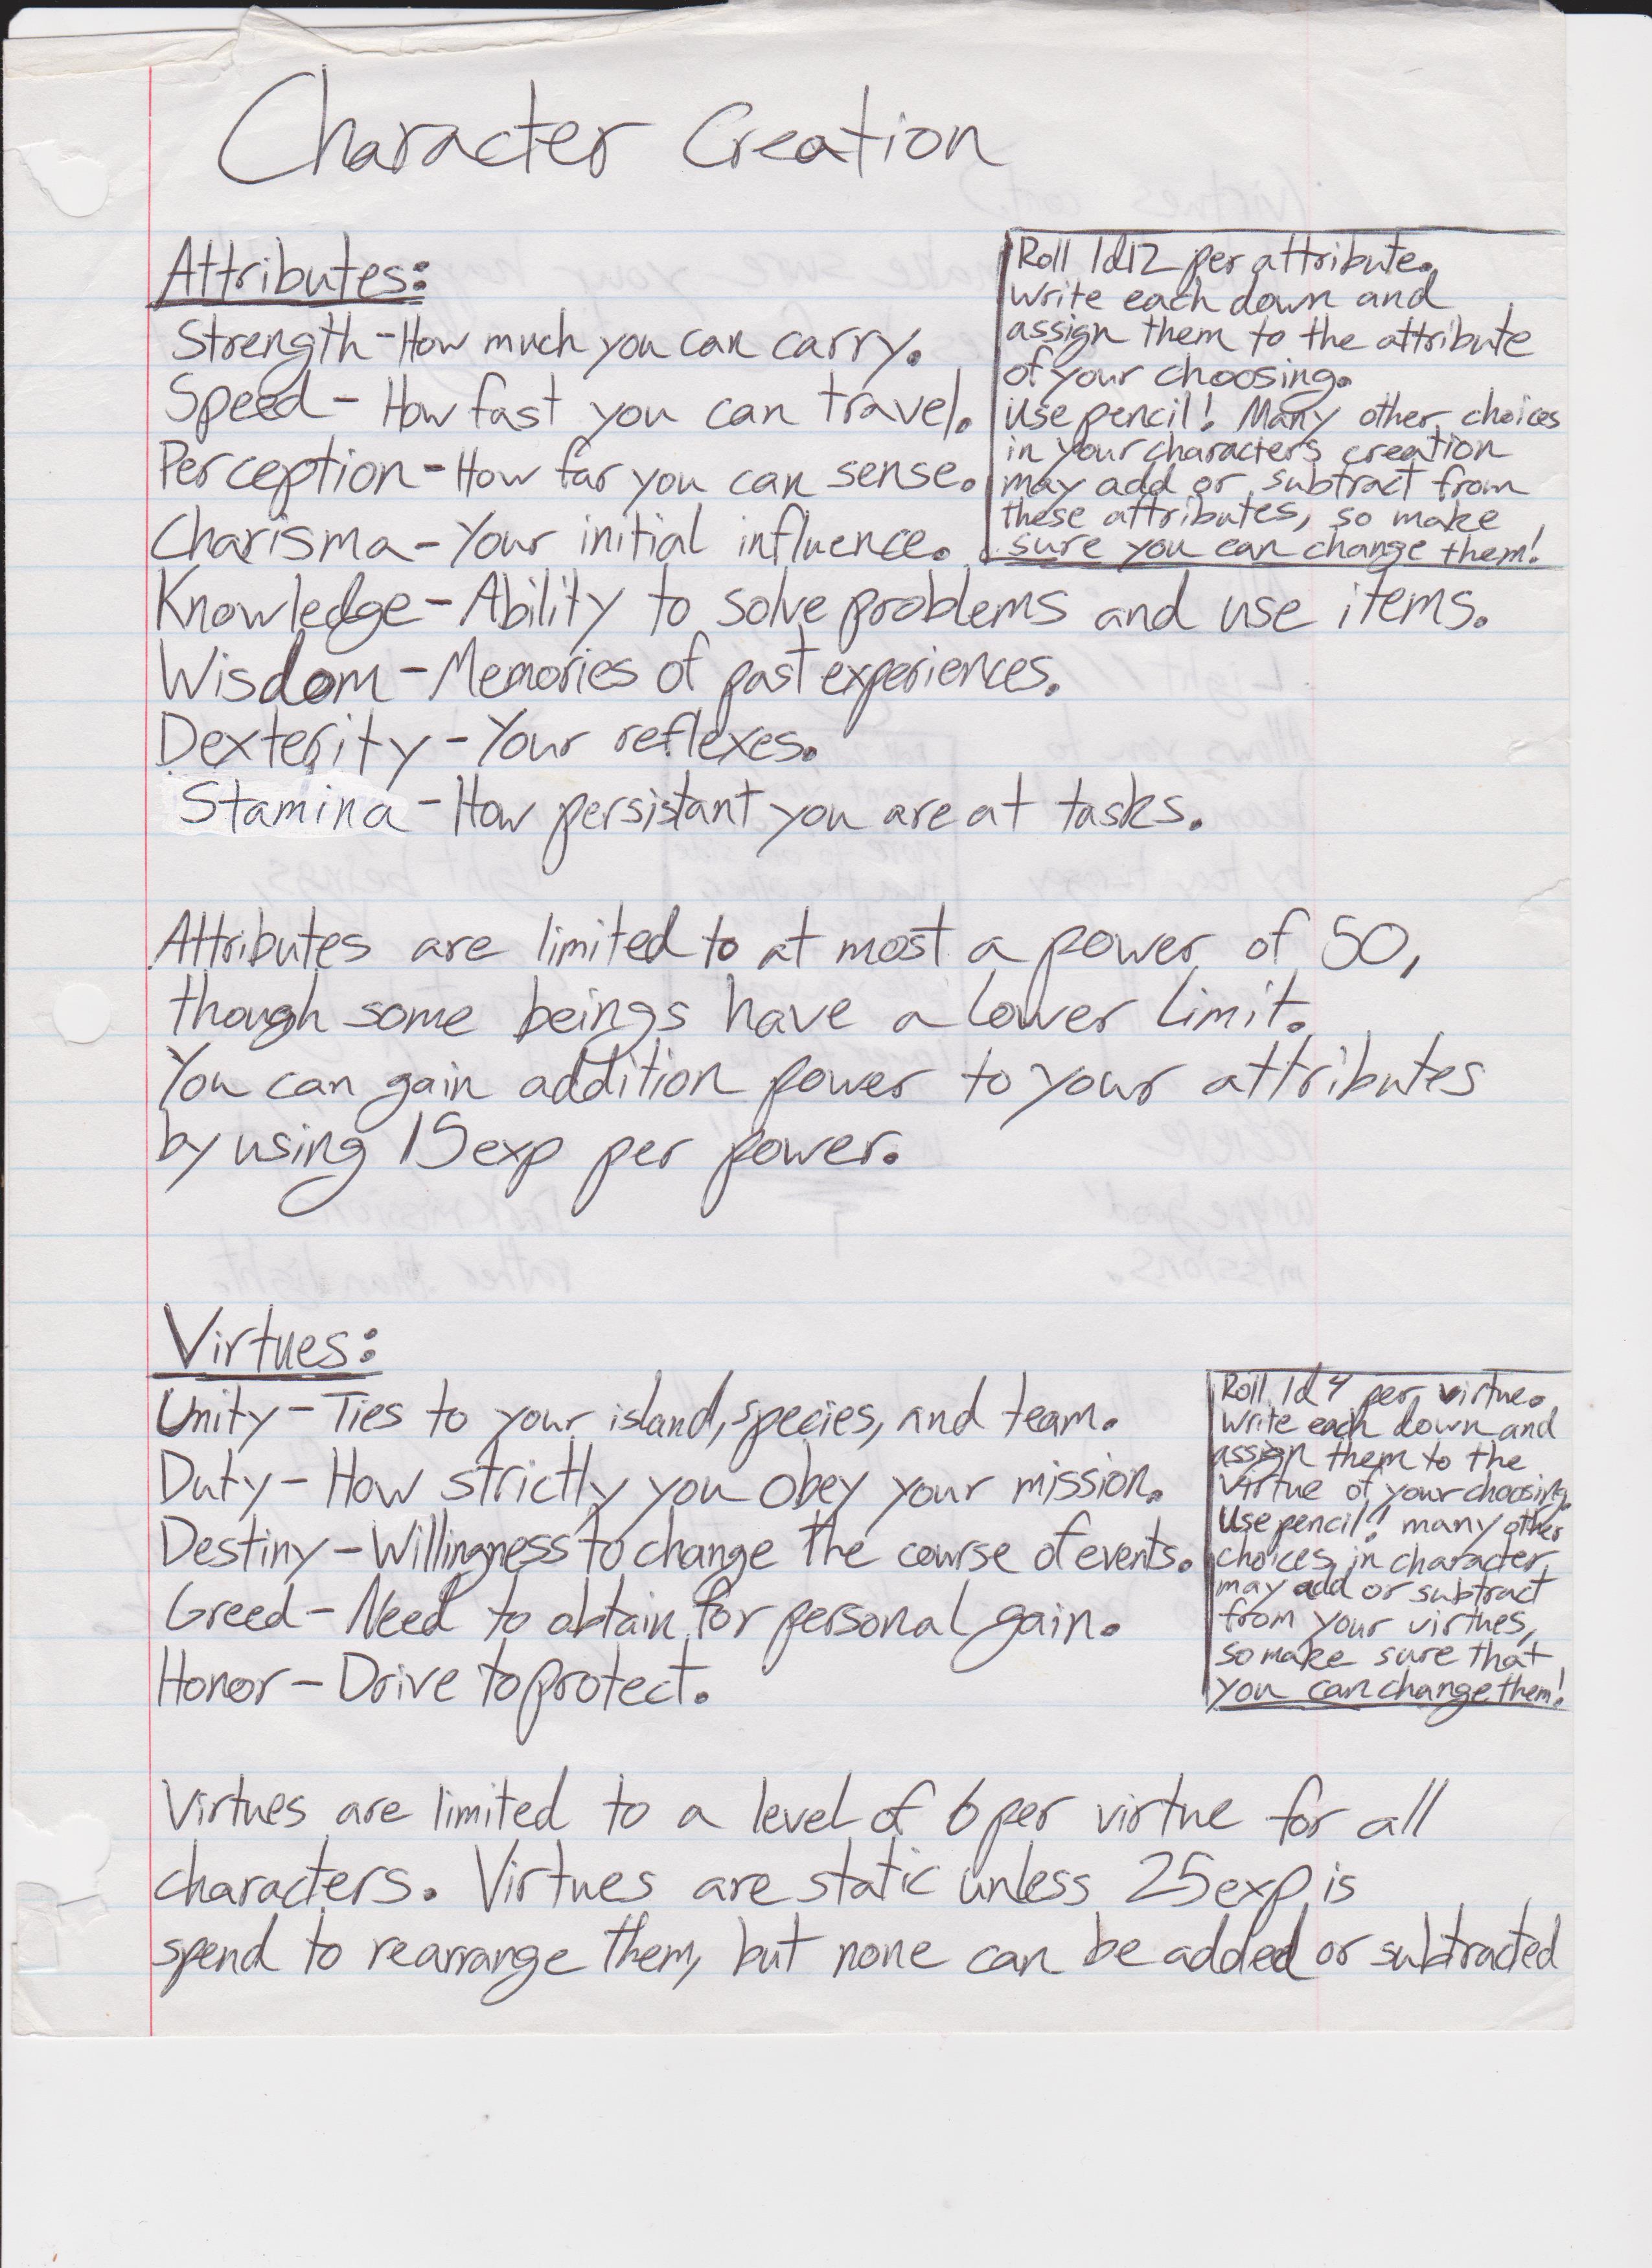 Character Creation
Attributes:
Strength-How much you can carry.
Speed - How fast you can travel.
Perception-How far you can sense.
Charisma-Your initial influence.
Roll 1d12 per attribute.
write each down and
assign them to the attribute
of your choosing.
Use pencil! Many other choices
in your characters creation
may add or subtract from
these attributes, so make
sure you can change them!
Knowledge-Ability to solve problems and use items.
Wisdom-Memories of past experiences.
Dexterity-Your reflexes.
Stamina-How persistant you are at tasks.
Attributes are limited to at most a power of 50,
though some beings have a lower limit.
You can gain addition power to your attributes
by using 15exp per power.
Virtues:
Unity-Ties to your island, species, and team.
Duty-How strictly you obey your mission.
Destiny-Willingness to change the course of events.
Greed-Need to obtain for personal gain.
Honor-Drive to protect.
Roll 1d4 per virtue.
Write each down and
assign them to the
virtue of your choosing.
Use pencil! many other
choices in character
may add or subtract
from your virtues,
so make sure that
you can change them!
Virtues are limited to a level of 6 per virtue for all
characters. Virtues are static unless 25exp is
spend to rearrange them, but none can be added or subtracted